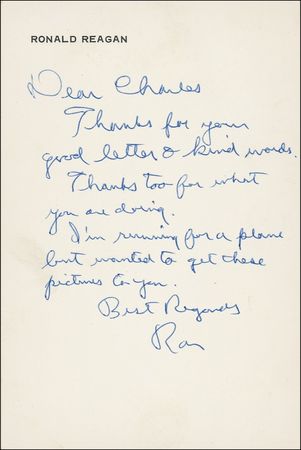 RONALD REAGAN
Dear Charles
Thanks for your
good letter & kind words.
Thanks too for what
you are doing.
I'm running for a plane
but wanted to get these
pictures to you.
Best Regards
Ron